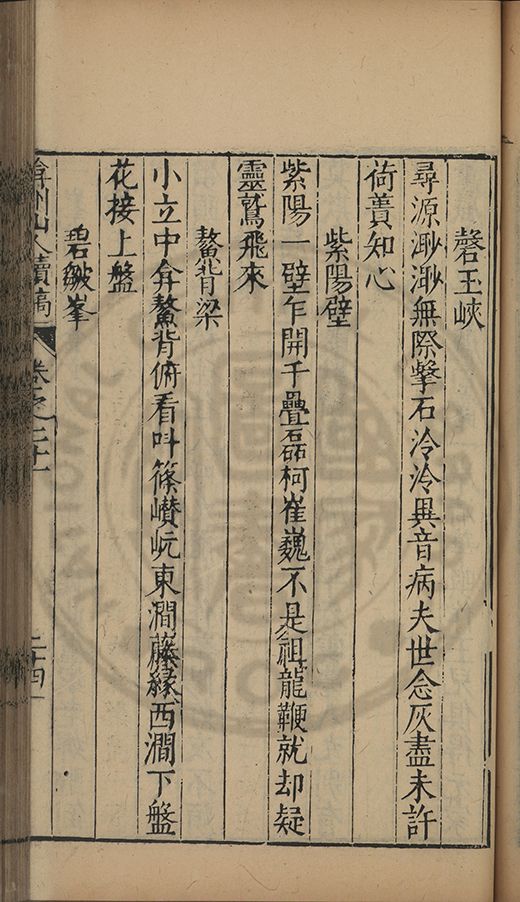 磬玉峽
尋源渺渺無際擊石泠泠異音病夫世念灰盡未許
荷蕢知心
紫陽壁
紫陽一壁乍開千疊磊柯崔巍不是祖龍鞭就却疑
靈鷲飛來
鰲背梁
小立中弇鰲背俯看叫篠巑岏東澗藤緣西澗下盤
花接上盤
碧皴峯
弇州山人續稿 卷之二十一 二十四